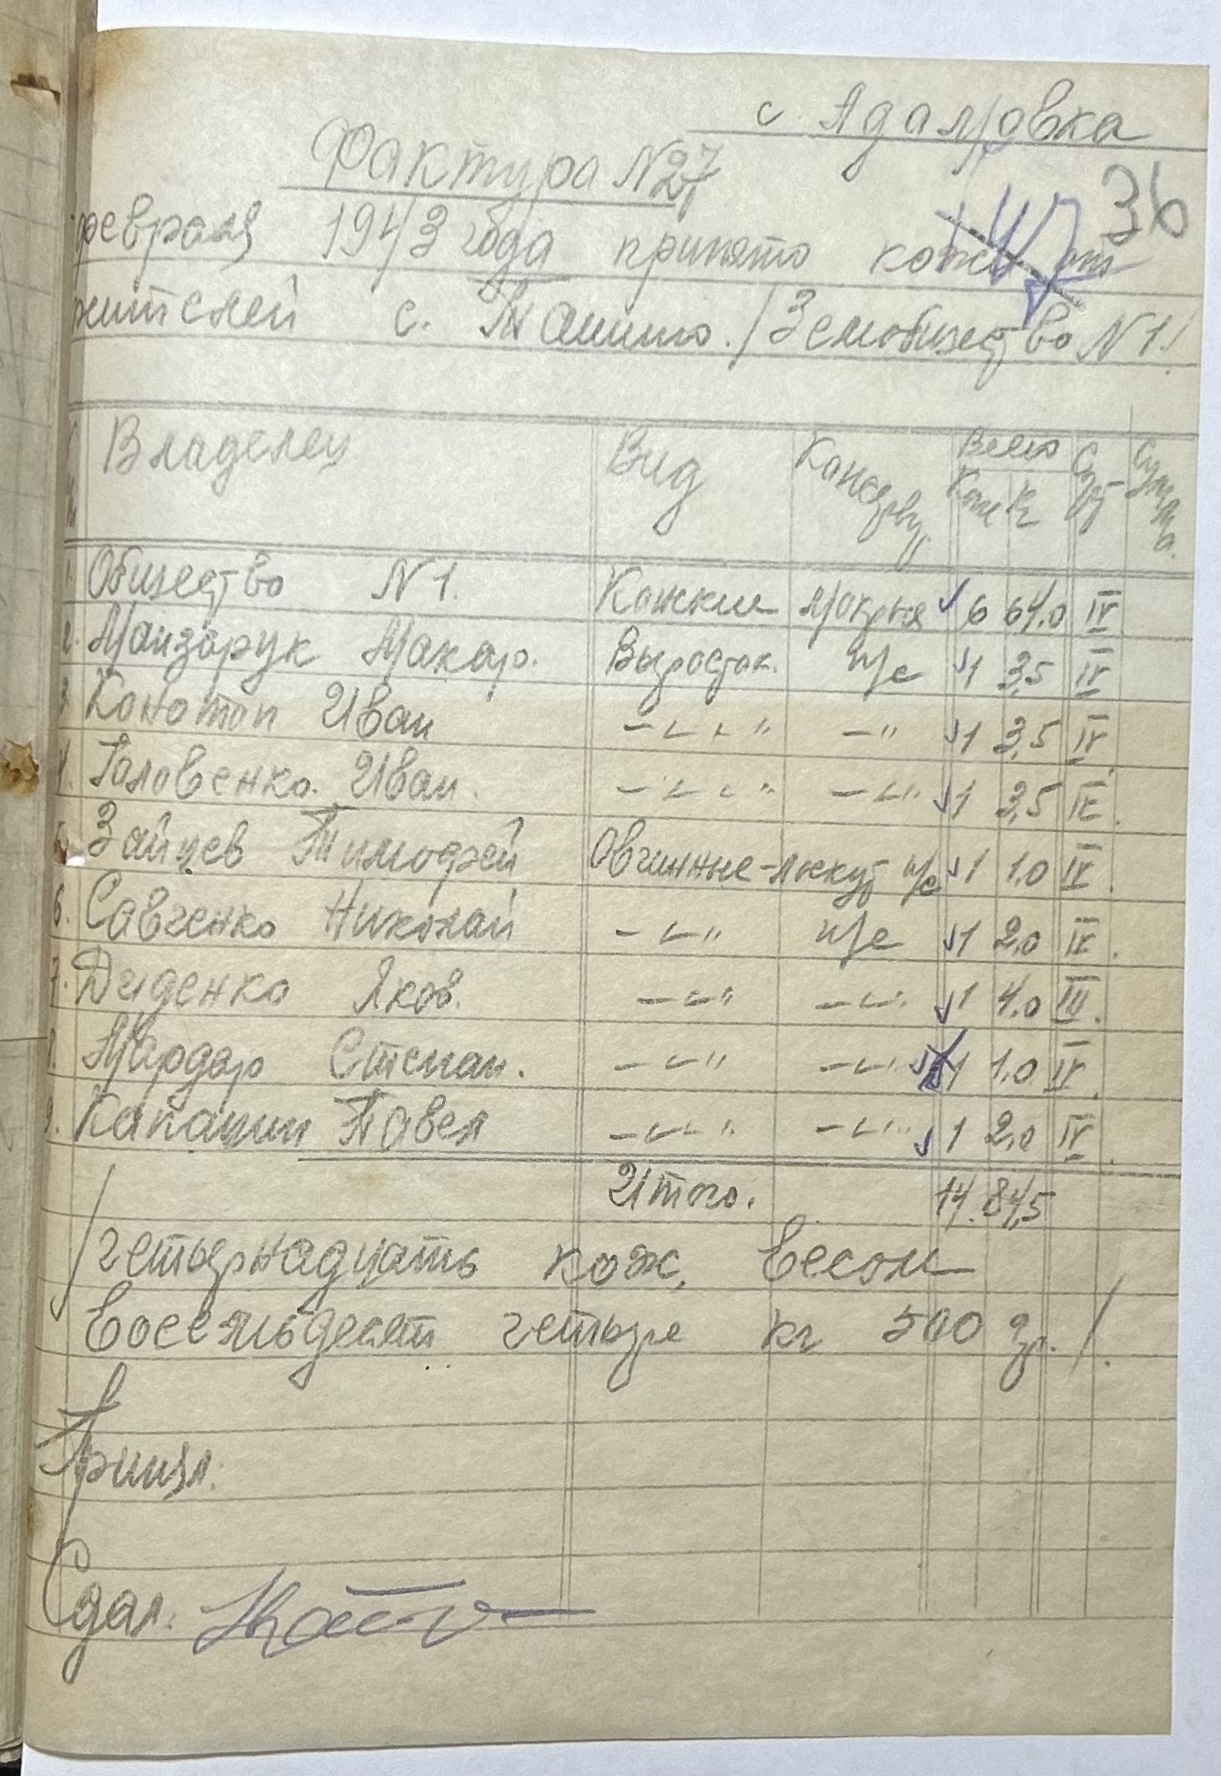 с. Адамовка
Фактура N 27
36
февраля 1943 года принято кож от
жителей с. Ташино. /Земобщество N 1./
Владелец Вид Консерву Всего Кож Кг Сорт Сумма.
1. Общество N 1. Конские мокрые 6 64,0 IV
2. Майзарук Макар. Выросток. п/с 1 3,5 IV
3. Конотоп Иван -〃- -〃- 1 3,5 IV
4. Головенко Иван. -〃- -〃- 1 3,5 IV.
5. Зайцев Тимофей Овчинные-лоскут п/с 1 1,0 IV.
6. Савченко Николай -〃- п/с 1 2,0 IV.
7. Диденко Яков. -〃- -〃- 1 4,0 III.
8. Мардар Степан. -〃- -〃- 1 1,0 IV.
9. Капацин Павел -〃- -〃- 1 2,0 IV.
Итого. 14. 84,5
/четырнадцать кож, весом
восемьдесят четыре кг 500 гр./.
Принял:
Сдал: